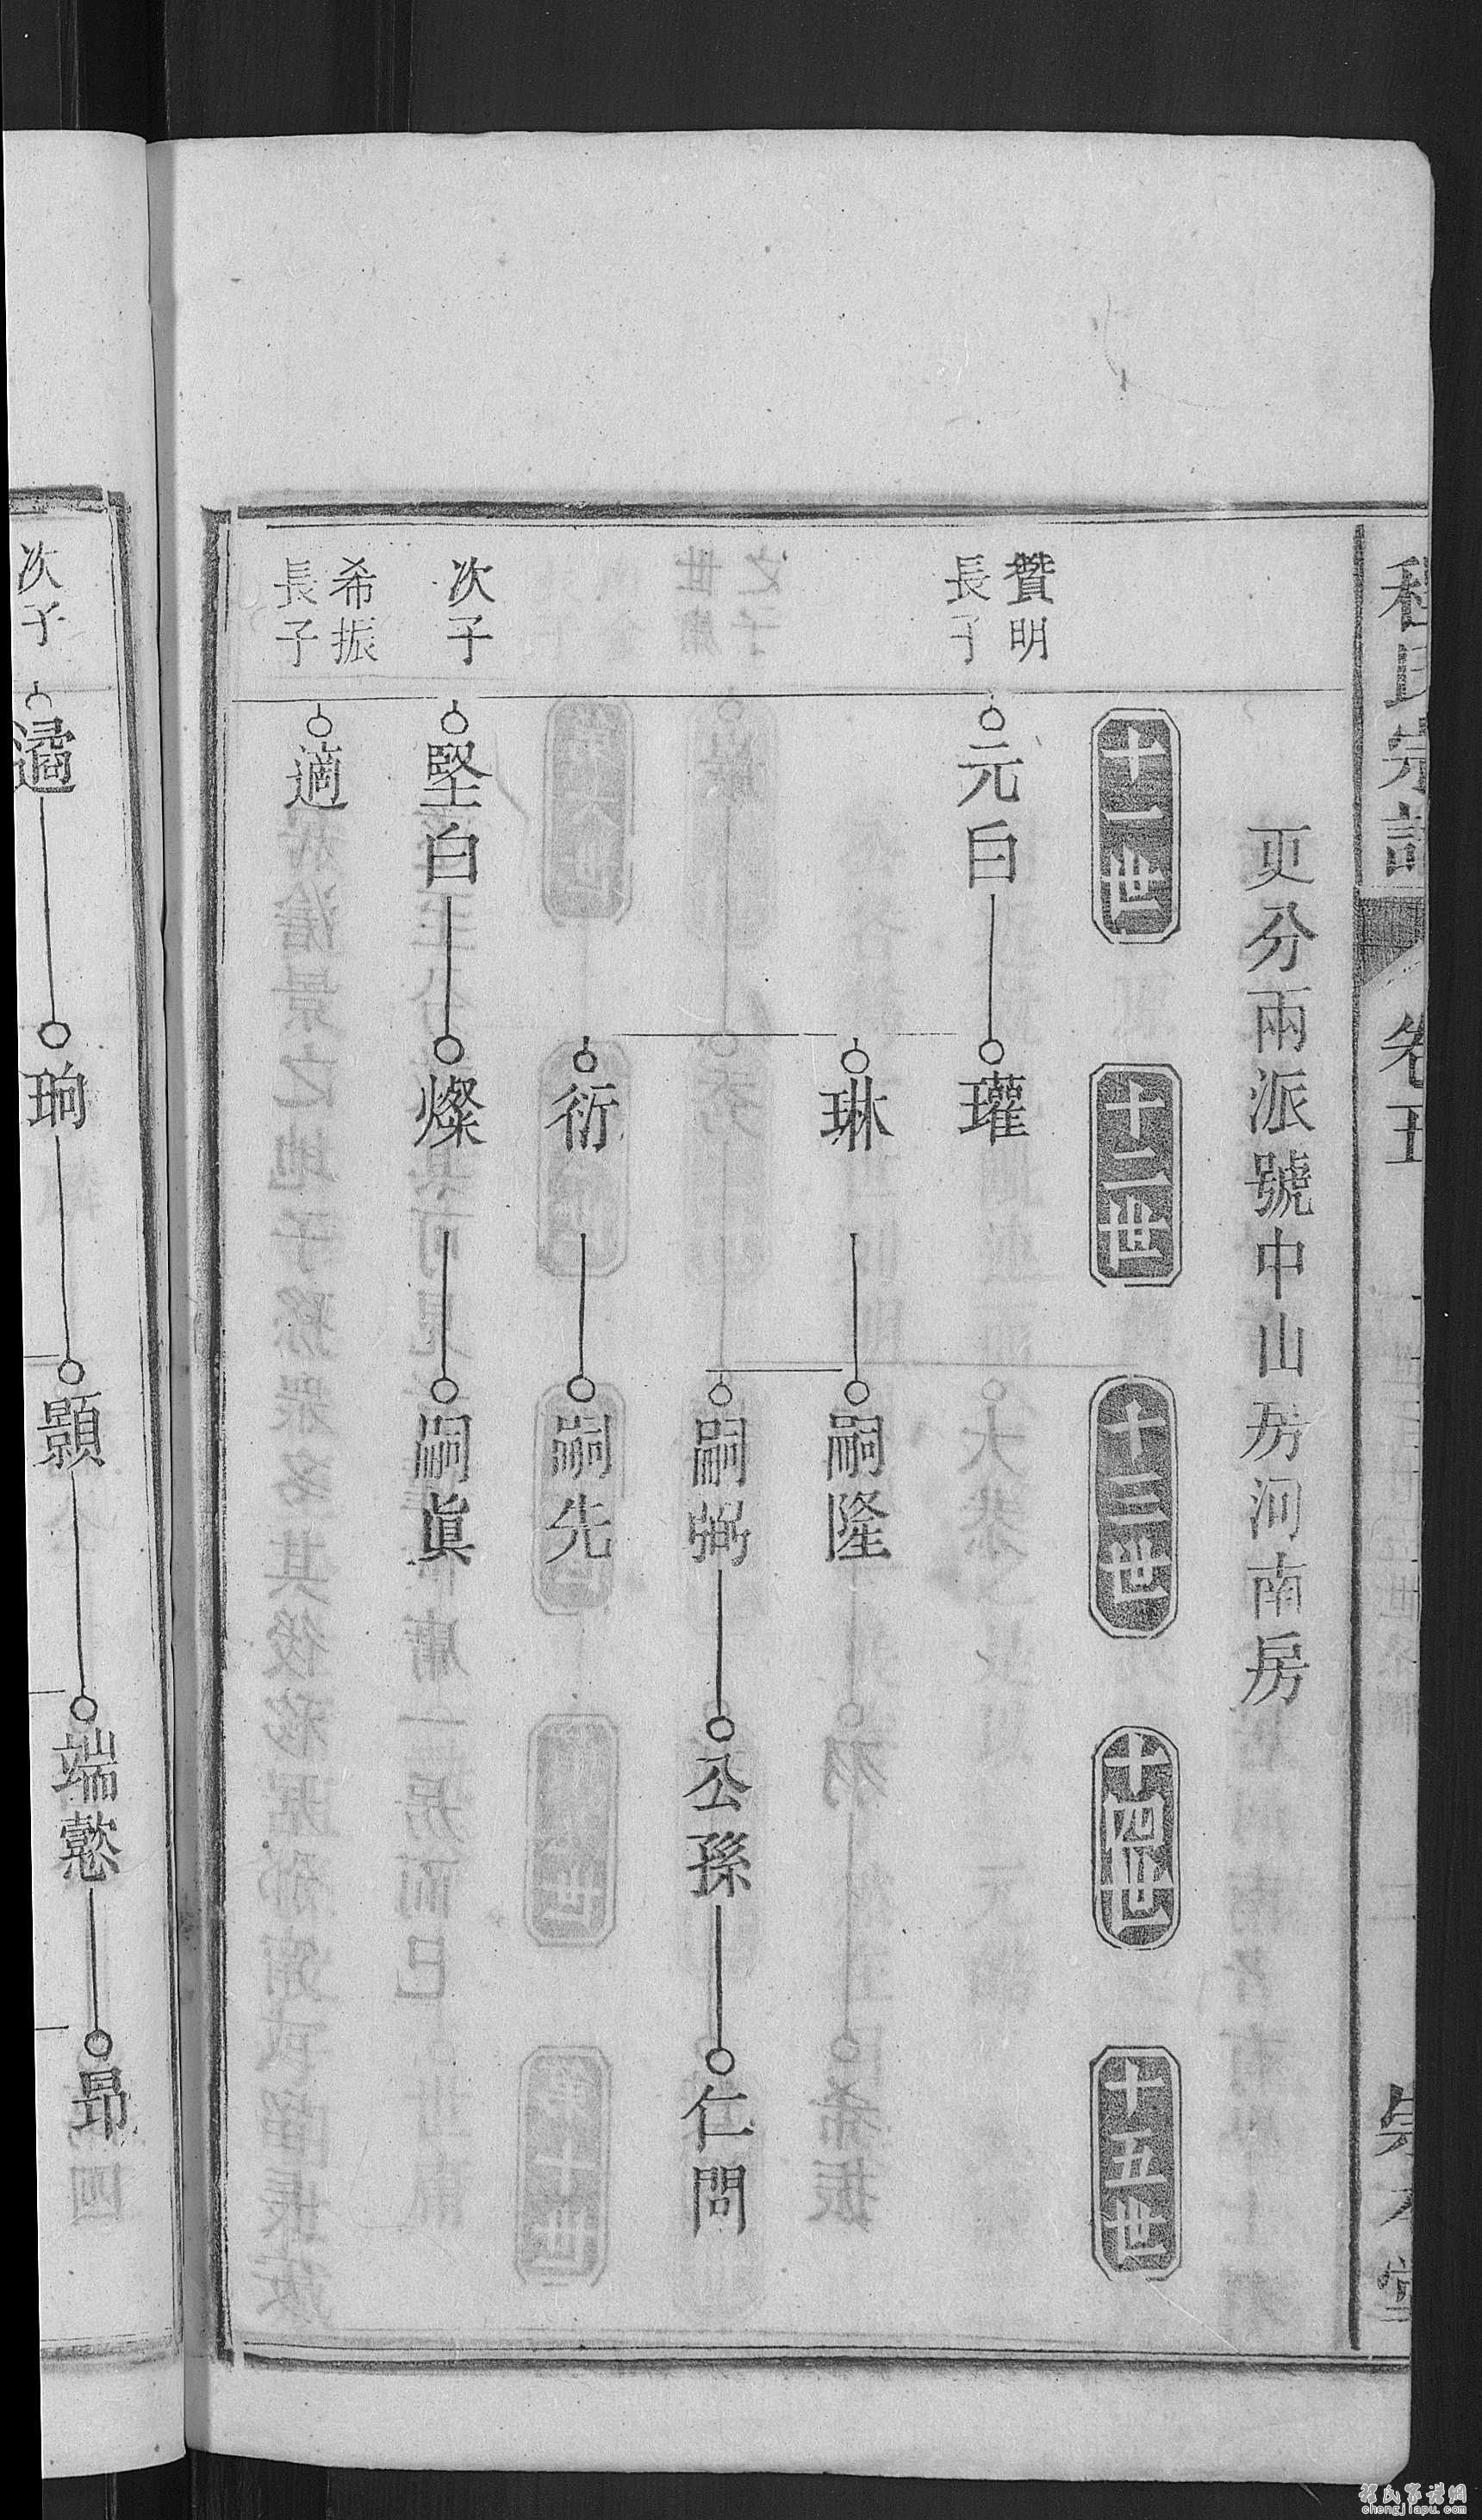 程氏宗譜
卷五
更分兩派號中山房河南房
十一世
十二世
十三世
十四世
十五世
贊明
長子
元白
瓘
琳
嗣隆
嗣弼
公孫
仁問
衍
嗣先
次子
堅白
燦
嗣眞
希振
長子
適
次子
遹
珦
顥
端懿
昂
程氏家譜網
chengjiapu.com